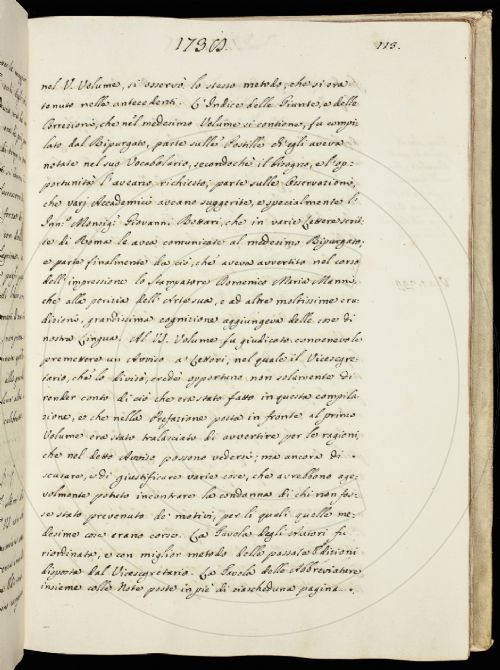 1738. 113.
nel V. Volume, si osservò lo stesso metodo, che si era
tenuto nelle antecedenti. L'Indice delle Giunte, e delle
Correzioni, che nel medesimo Volume si contiene, fu compi-
lato dal Ripurgato, parte sulle Postille ch'egli aveva
notate nel suo Vocabolario, secondochè il bisogno, e l'op-
portunità l'aveano richiesto, parte sulle Osservazioni,
che varj Accademici aveano suggerite, e specialmente l'
Inn.° Monsig.r Giovanni Bottari, che in varie Lettere scrit-
te di Roma le avea comunicate al medesimo Ripurgato;
e parte finalmente da ciò, che aveva avvertito nel corso
dell'impressione lo Stampatore Domenico Maria Manni,
che alla perizia dell'Arte sua, e ad altre moltissime eru-
dizioni, grandissima cognizione aggiungeva delle cose di
nostra Lingua. Al VI. Volume fu giudicato convenevole
premettere un Avviso a' Lettori, nel quale il Vicesegre-
tario, che lo divisò, credè opportuno non solamente di
render conto di ciò che era stato fatto in questa compila-
zione, e che nella Prefazione posta in fronte al primo
Volume era stato tralasciato di avvertire per le ragioni,
che nel detto Avviso possono vedersi; ma ancora di
scusare, e di giustificare varie cose, che avrebbono age-
volmente potuto incontrare la condanna di chi non fos-
se stato prevenuto de' motivi, per li quali quelle me-
desime cose erano corse. La Tavola degli Autori fu
riordinata, e con miglior metodo delle passate Edizioni
disposta dal Vicesegretario. La Tavola delle Abbreviature
insieme colle Note poste in piè di ciascheduna pagina